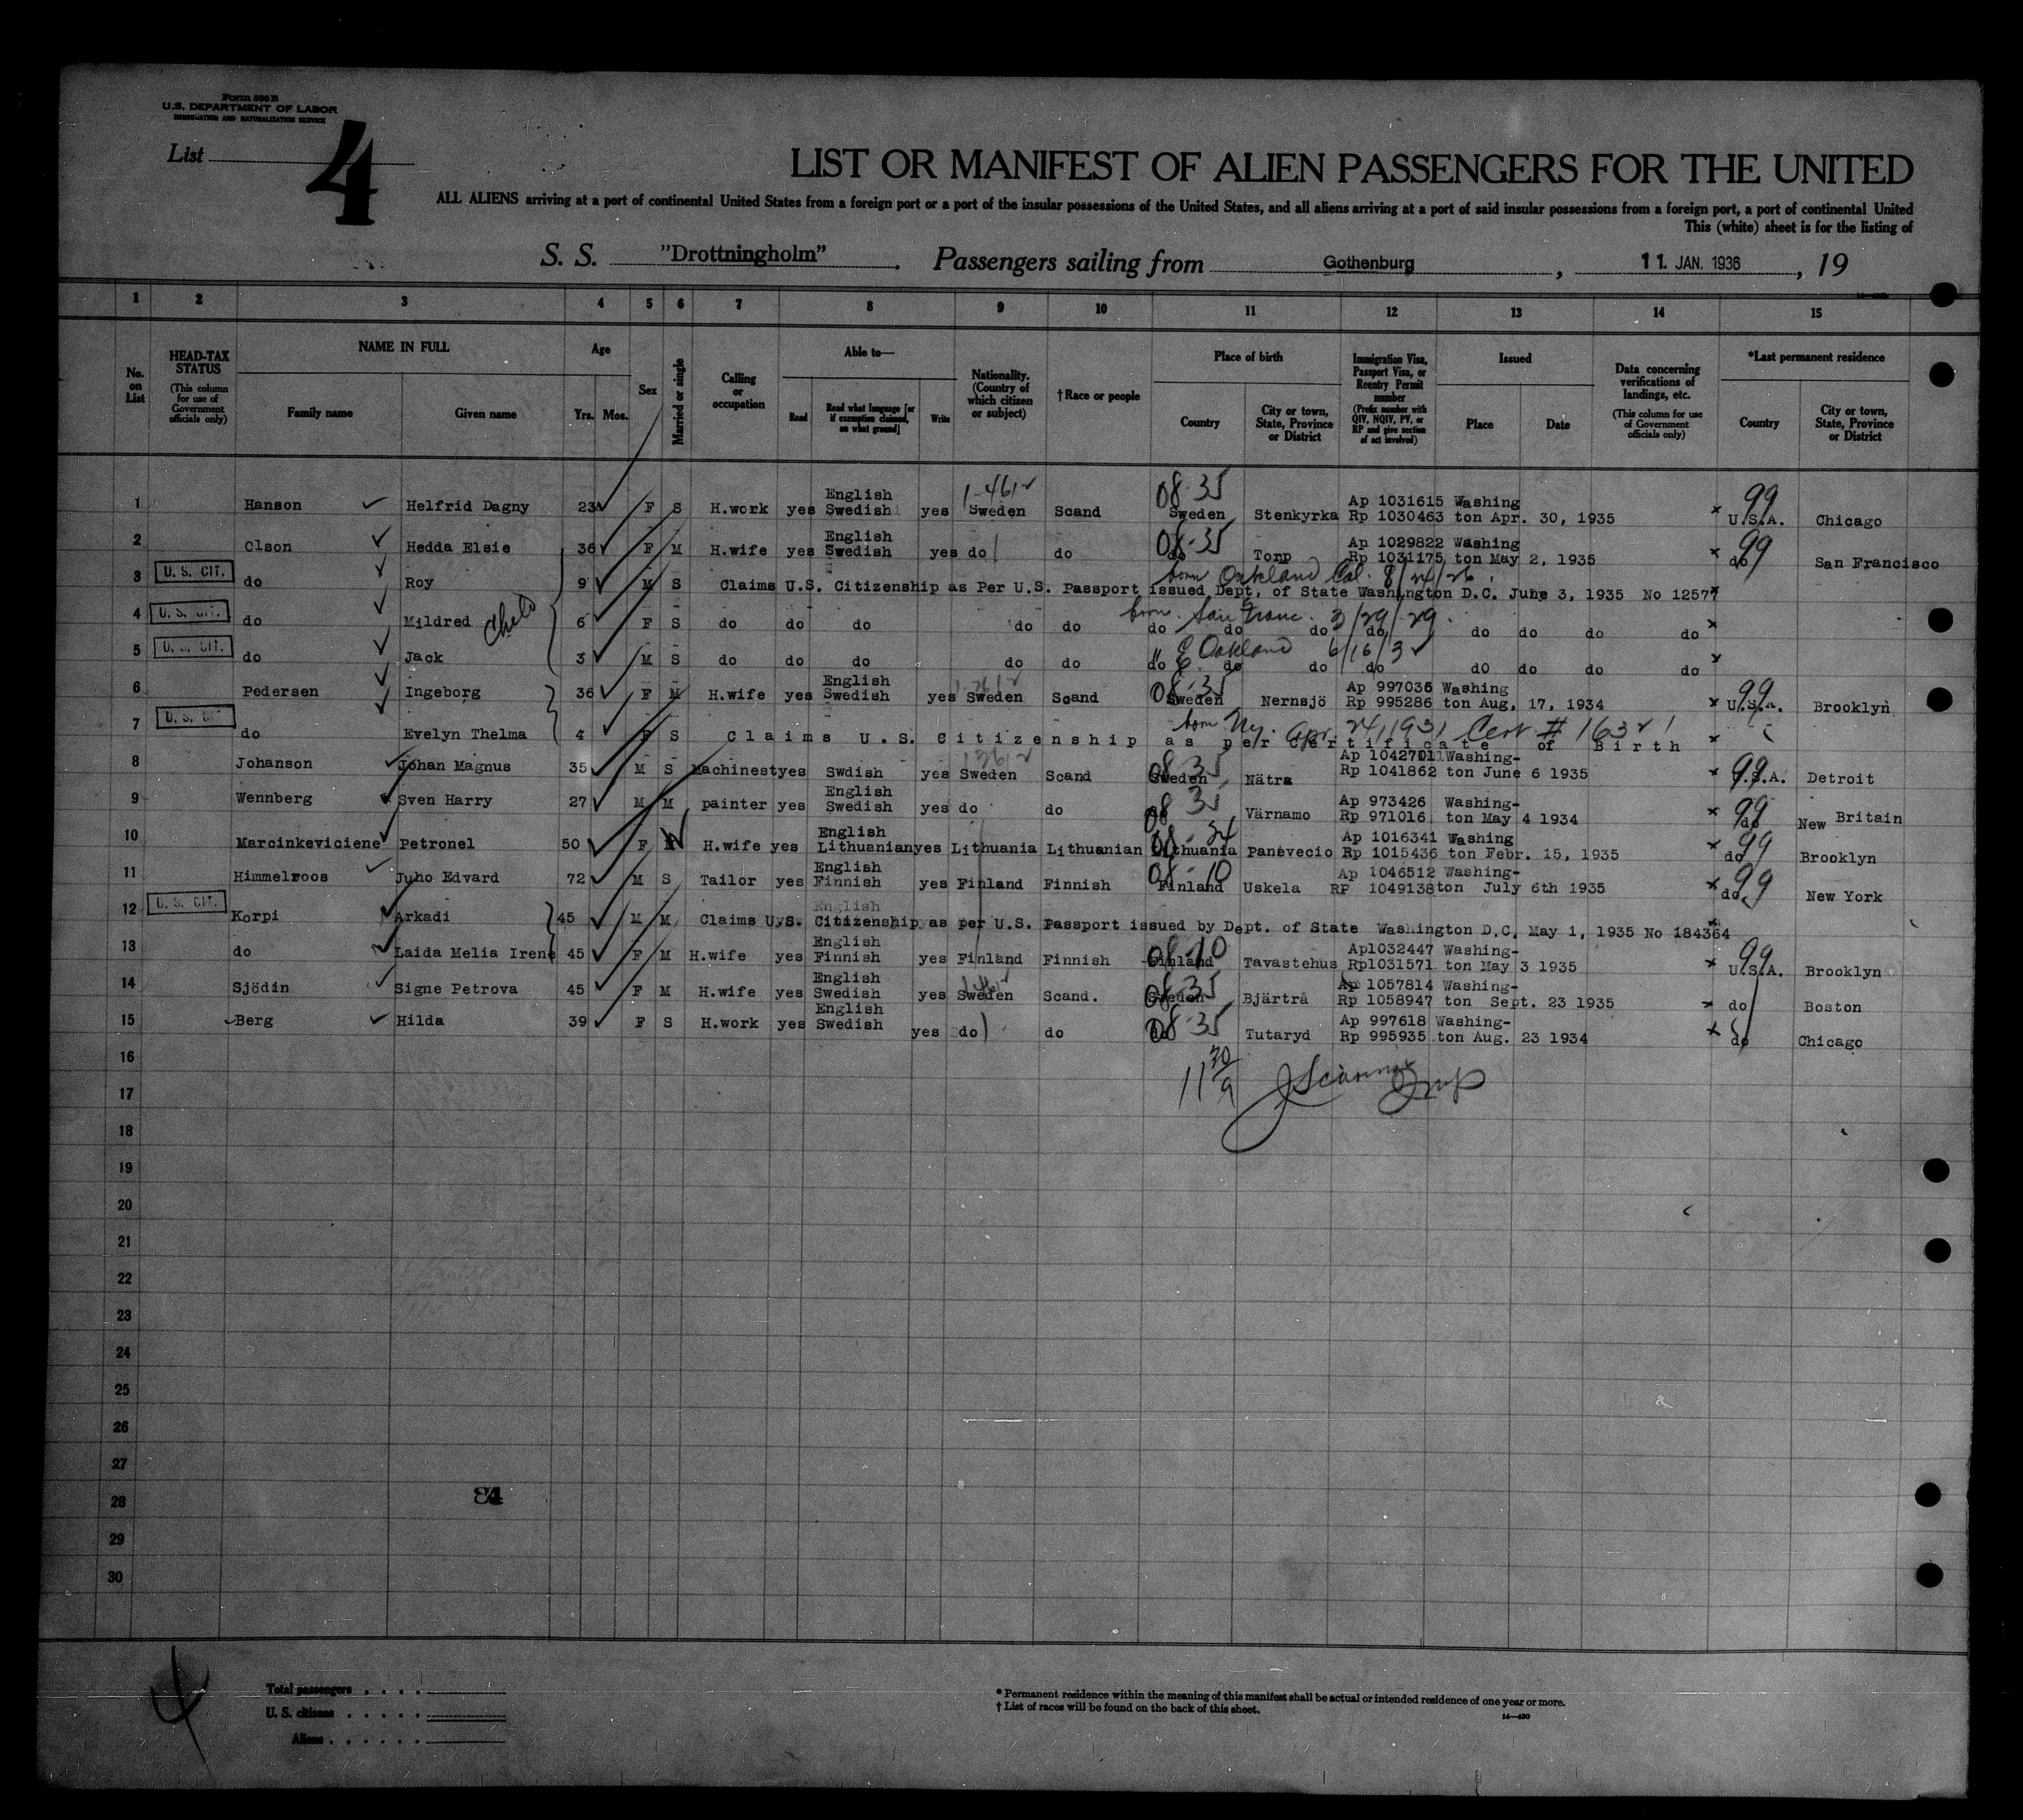 Form 500 B
U.S. DEPARTMENT OF LABOR
IMMIGRATION AND NATURALIZATION SERVICE
List 4
LIST OR MANIFEST OF ALIEN PASSENGERS FOR THE UNITED
ALL ALIENS arriving at a port of continental United States from a foreign port or a port of the insular possessions of the United States, and all aliens arriving at a port of said insular possessions from a foreign port, a port of continental United
This (white) sheet is for the listing of
S. S. "Drottningholm". Passengers sailing from Gothenburg, 11. JAN. 1936, 19
1 2 3 4 5 6 7 8 9 10 11 12 13 14 15
No. on List
HEAD-TAX STATUS (This column for use of Government officials only)
NAME IN FULL
Family name Given name
Age
Yrs. Mos.
Sex
Married or single
Calling or occupation
Able to—
Read Read what language [or if exemption claimed, on what ground] Write
Nationality. (Country of which citizen or subject)
†Race or people
Place of birth
Country City or town, State, Province or District
Immigration Visa, Passport Visa, or Reentry Permit number (Prefix number with QIV, NQIV, PV, or RP and give section of act involved)
Issued
Place Date
Data concerning verifications of landings, etc. (This column for use of Government officials only)
*Last permanent residence
Country City or town, State, Province or District
1 Hanson Helfrid Dagny 23 F S H.work yes English Swedish yes Sweden Scand 08-35 Sweden Stenkyrka Ap 1031615 Rp 1030463 Washing ton Apr. 30, 1935 x 99 U.S.A. Chicago
2 Olson Hedda Elsie 36 F M H.wife yes English Swedish yes do do 08-35 do Torp Ap 1029822 Rp 1031175 Washing ton May 2, 1935 x 99 do San Francisco
born Oakland Cal. 8/24/26.
3 U. S. CIT. do Roy 9 M S Claims U.S. Citizenship as Per U.S. Passport issued Dept, of State Washington D.C. June 3, 1935 No 12577 x
born San Franc. 3/29/29.
4 U. S. CIT. do Mildred 6 F S do do do do do do do do do do do do do x
" E Oakland 6/16/32
5 U. S. CIT. do Jack 3 M S do do do do do do do do do dO do do do x
6 Pedersen Ingeborg 36 F M H.wife yes English Swedish yes Sweden Scand 08-35 Sweden Nernsjö Ap 997036 Rp 995286 Washing ton Aug. 17, 1934 x 99 U.S.A. Brooklyn
born Ny. Apr. 24, 1931 Cert #
7 U. S. CIT. do Evelyn Thelma 4 F S Claims U.S. Citizenship as per Certificate of Birth x
8 Johanson Johan Magnus 35 M S Machinest yes Swdish yes Sweden Scand 08-35 Sweden Nätra Ap 1042701 Rp 1041862 Washing- ton June 6 1935 x 99 U.S.A. Detroit
9 Wennberg Sven Harry 27 M M painter yes English Swedish yes do do 08 35 Värnamo Ap 973426 Rp 971016 Washing- ton May 4 1934 x 99 do New Britain
10 Marcinkeviciene Petronel 50 F H.wife yes English Lithuanian yes Lithuania Lithuanian Lithuania Panevecio Ap 1016341 Rp 1015436 Washing ton Febr. 15, 1935 x 99 do Brooklyn
11 Himmelroos Juho Edvard 72 M S Tailor yes English Finnish yes Finland Finnish 08-10 Finland Uskela Ap 1046512 RP 1049138 Washing- ton July 6th 1935 x 99 do New York
12 U. S. CIT. Korpi Arkadi 45 M M Claims U.S. Citizenship as per U.S. Passport issued by Dept. of State Washington D.C. May 1, 1935 No 184364 x
13 do Laida Melia Irene 45 F M H.wife yes English Finnish yes Finland Finnish 08-10 Finland Tavastehus Ap1032447 Rp1031571 Washing- ton May 3 1935 x 99 U.S.A. Brooklyn
14 Sjödin Signe Petrova 45 F M H.wife yes English Swedish yes Sweden Scand. 08-35 Sweden Bjärtrå Ap 1057814 Rp 1058947 Washing- ton Sept. 23 1935 x do Boston
15 Berg Hilda 39 F S H.work yes English Swedish yes do do 08-35 do Tutaryd Ap 997618 Rp 995935 Washing- ton Aug. 23 1934 x do Chicago
16
17
18
19
20
21
22
23
24
25
26
27
28
29
30
4
Total passengers . . . .
U. S. citizens . . . . .
Aliens . . . . . .
* Permanent residence within the meaning of this manifest shall be actual or intended residence of one year or more.
† List of races will be found on the back of this sheet.